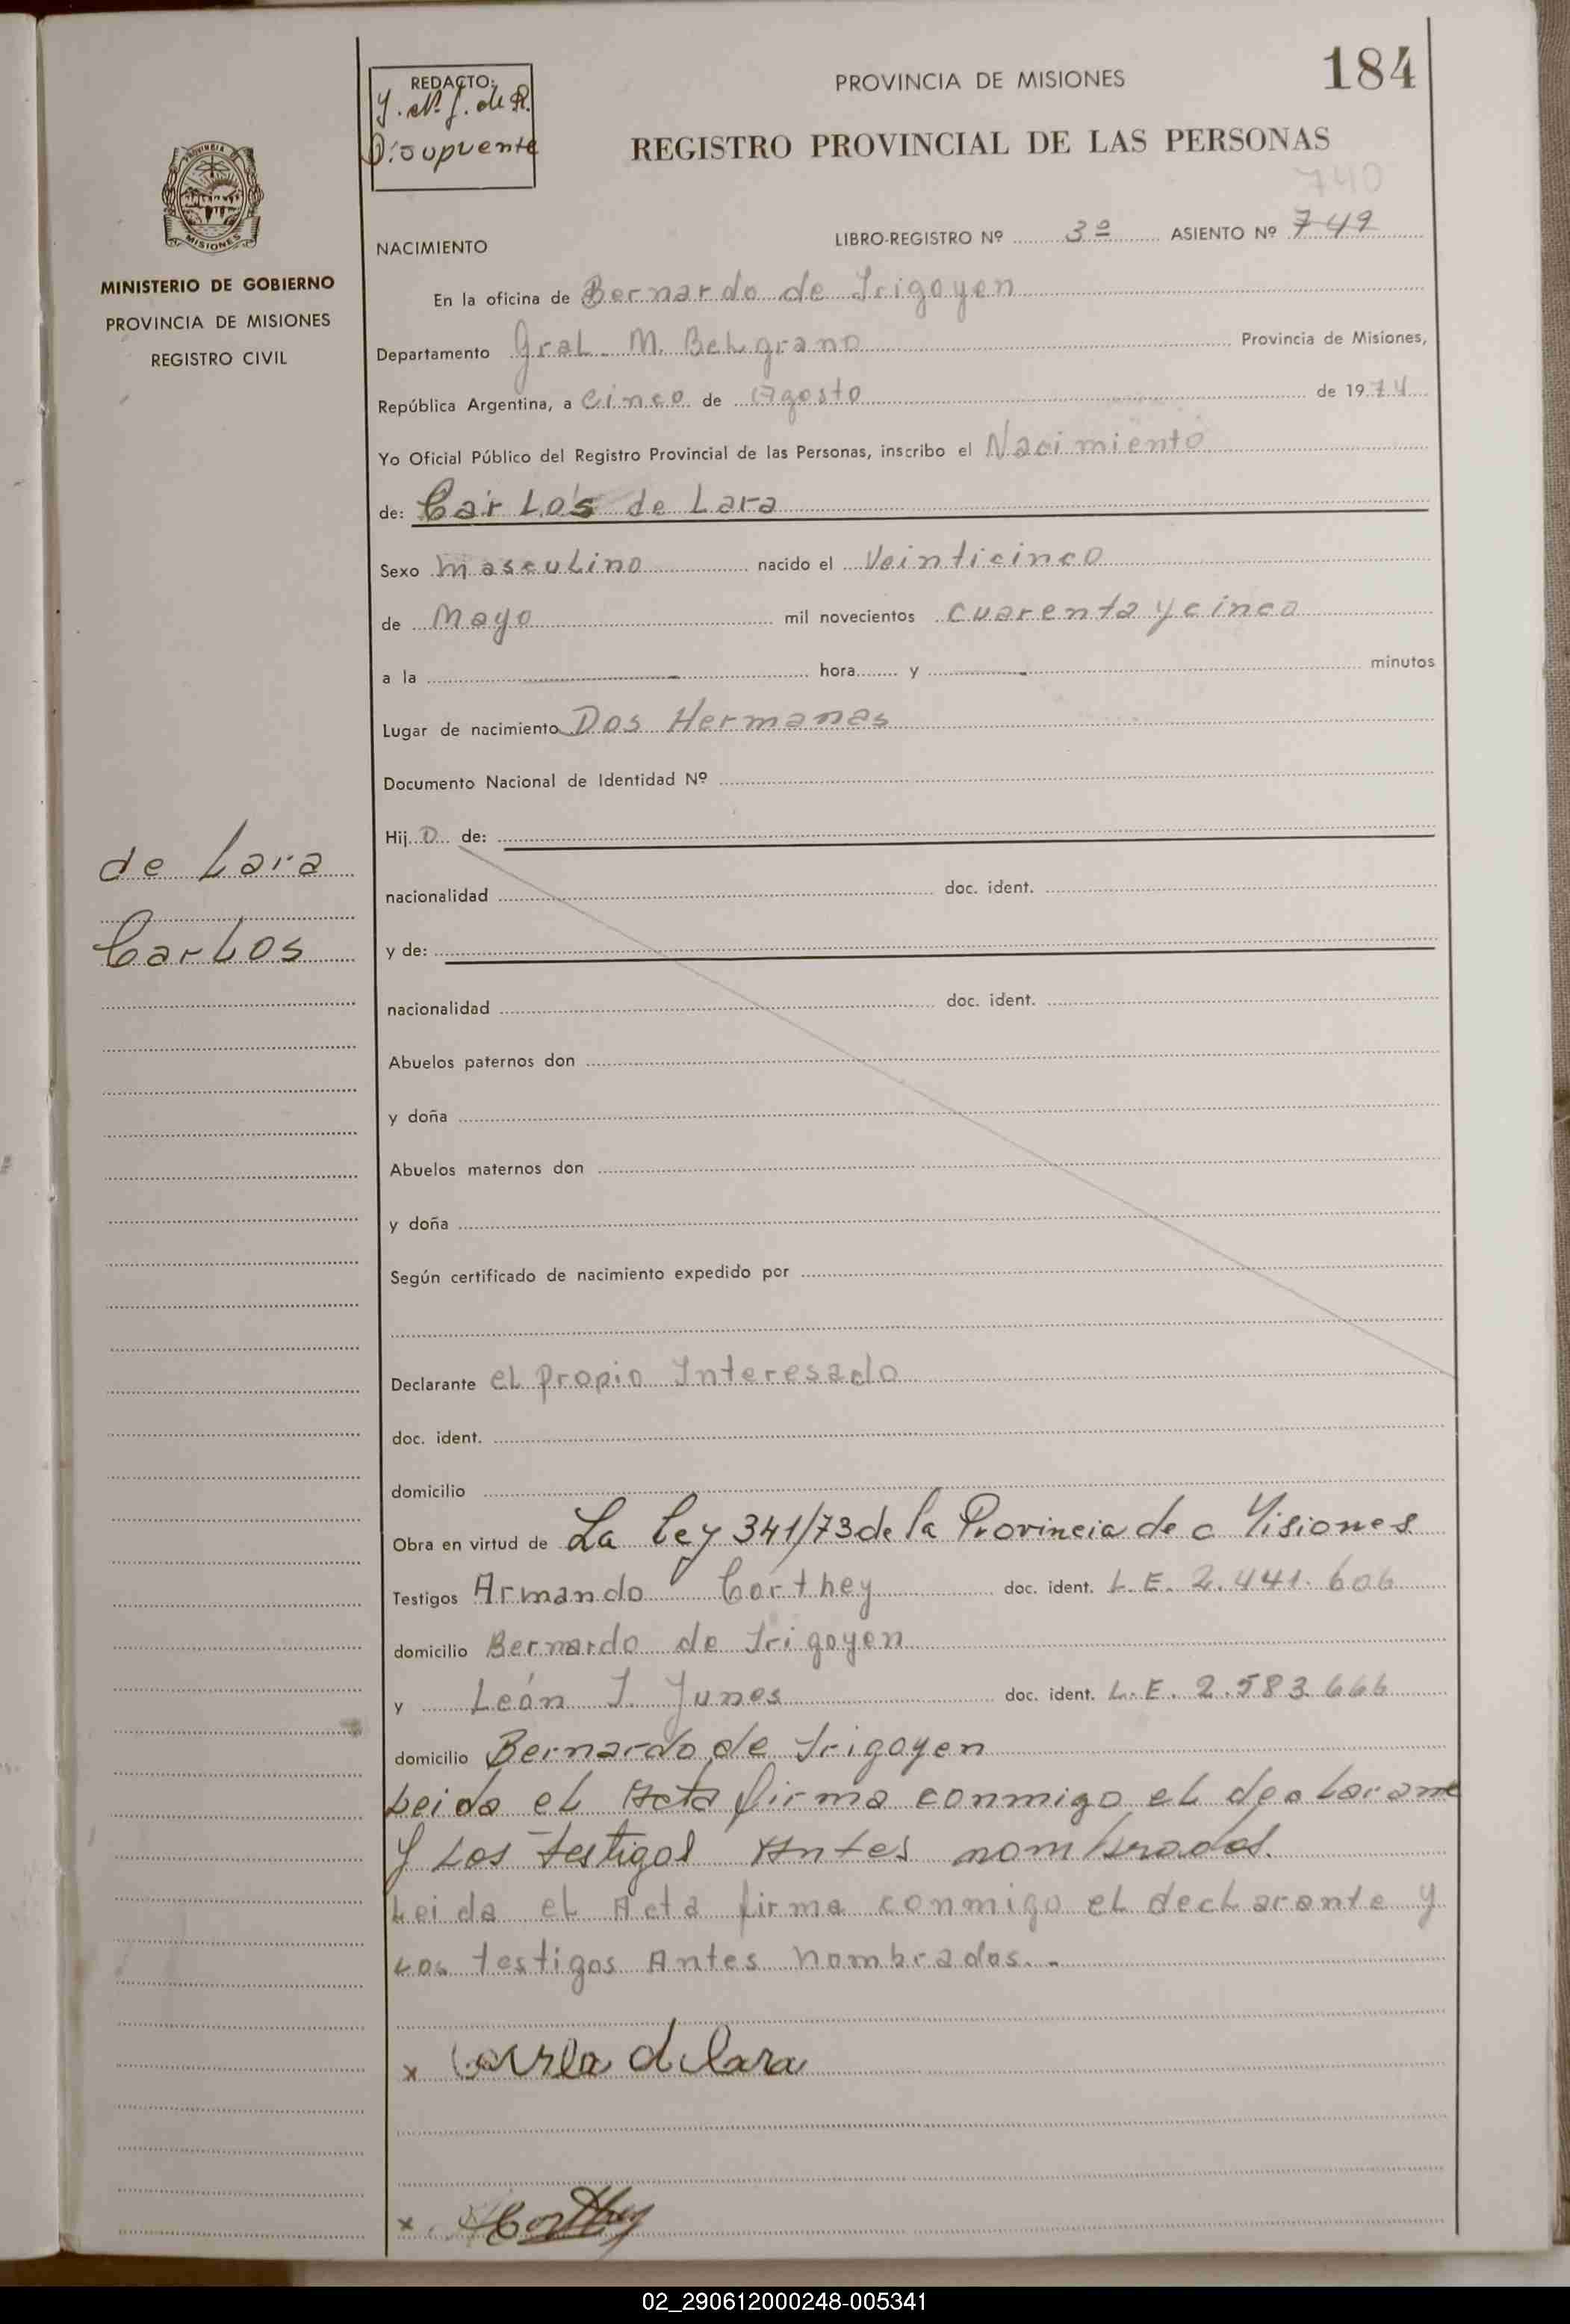 184
REDACTO:
Y. N. J. de R.
PROVINCIA DE MISIONES
REGISTRO PROVINCIAL DE LAS PERSONAS
740
PROVINCIA DE
MISIONES
MINISTERIO DE GOBIERNO
PROVINCIA DE MISIONES
REGISTRO CIVIL
NACIMIENTO LIBRO-REGISTRO Nº 3º ASIENTO Nº 749
En la oficina de Bernardo de Irigoyen
Departamento Gral. M. Belgrano Provincia de Misiones,
República Argentina, a Cinco de Agosto de 1974
Yo Oficial Público del Registro Provincial de las Personas, inscribo el Nacimiento
de: Carlos de Lara
Sexo Masculino nacido el Veinticinco
de Mayo mil novecientos cuarenta y cinco
a la hora y minutos
Lugar de nacimiento Dos Hermanas
Documento Nacional de Identidad Nº
Hijo de:
de Lara
nacionalidad doc. ident.
Carlos
y de:
nacionalidad doc. ident.
Abuelos paternos don
y doña
Abuelos maternos don
y doña
Según certificado de nacimiento expedido por
Declarante el Propio Interesado
doc. ident.
domicilio
Obra en virtud de La Ley 341/73 de la Provincia de Misiones
Testigos Armando Corthey doc. ident. L.E. 2.441.606
domicilio Bernardo de Irigoyen
y León J. Junes doc. ident. L.E. 2.583.666
domicilio Bernardo de Irigoyen
Leida el Acta firma conmigo el
y Los testigos Antes nombrados.
Leida el Acta firma conmigo el declarante y
Los testigos Antes nombrados.-
x Carlo de lara
x Corthey
02_290612000248-005341